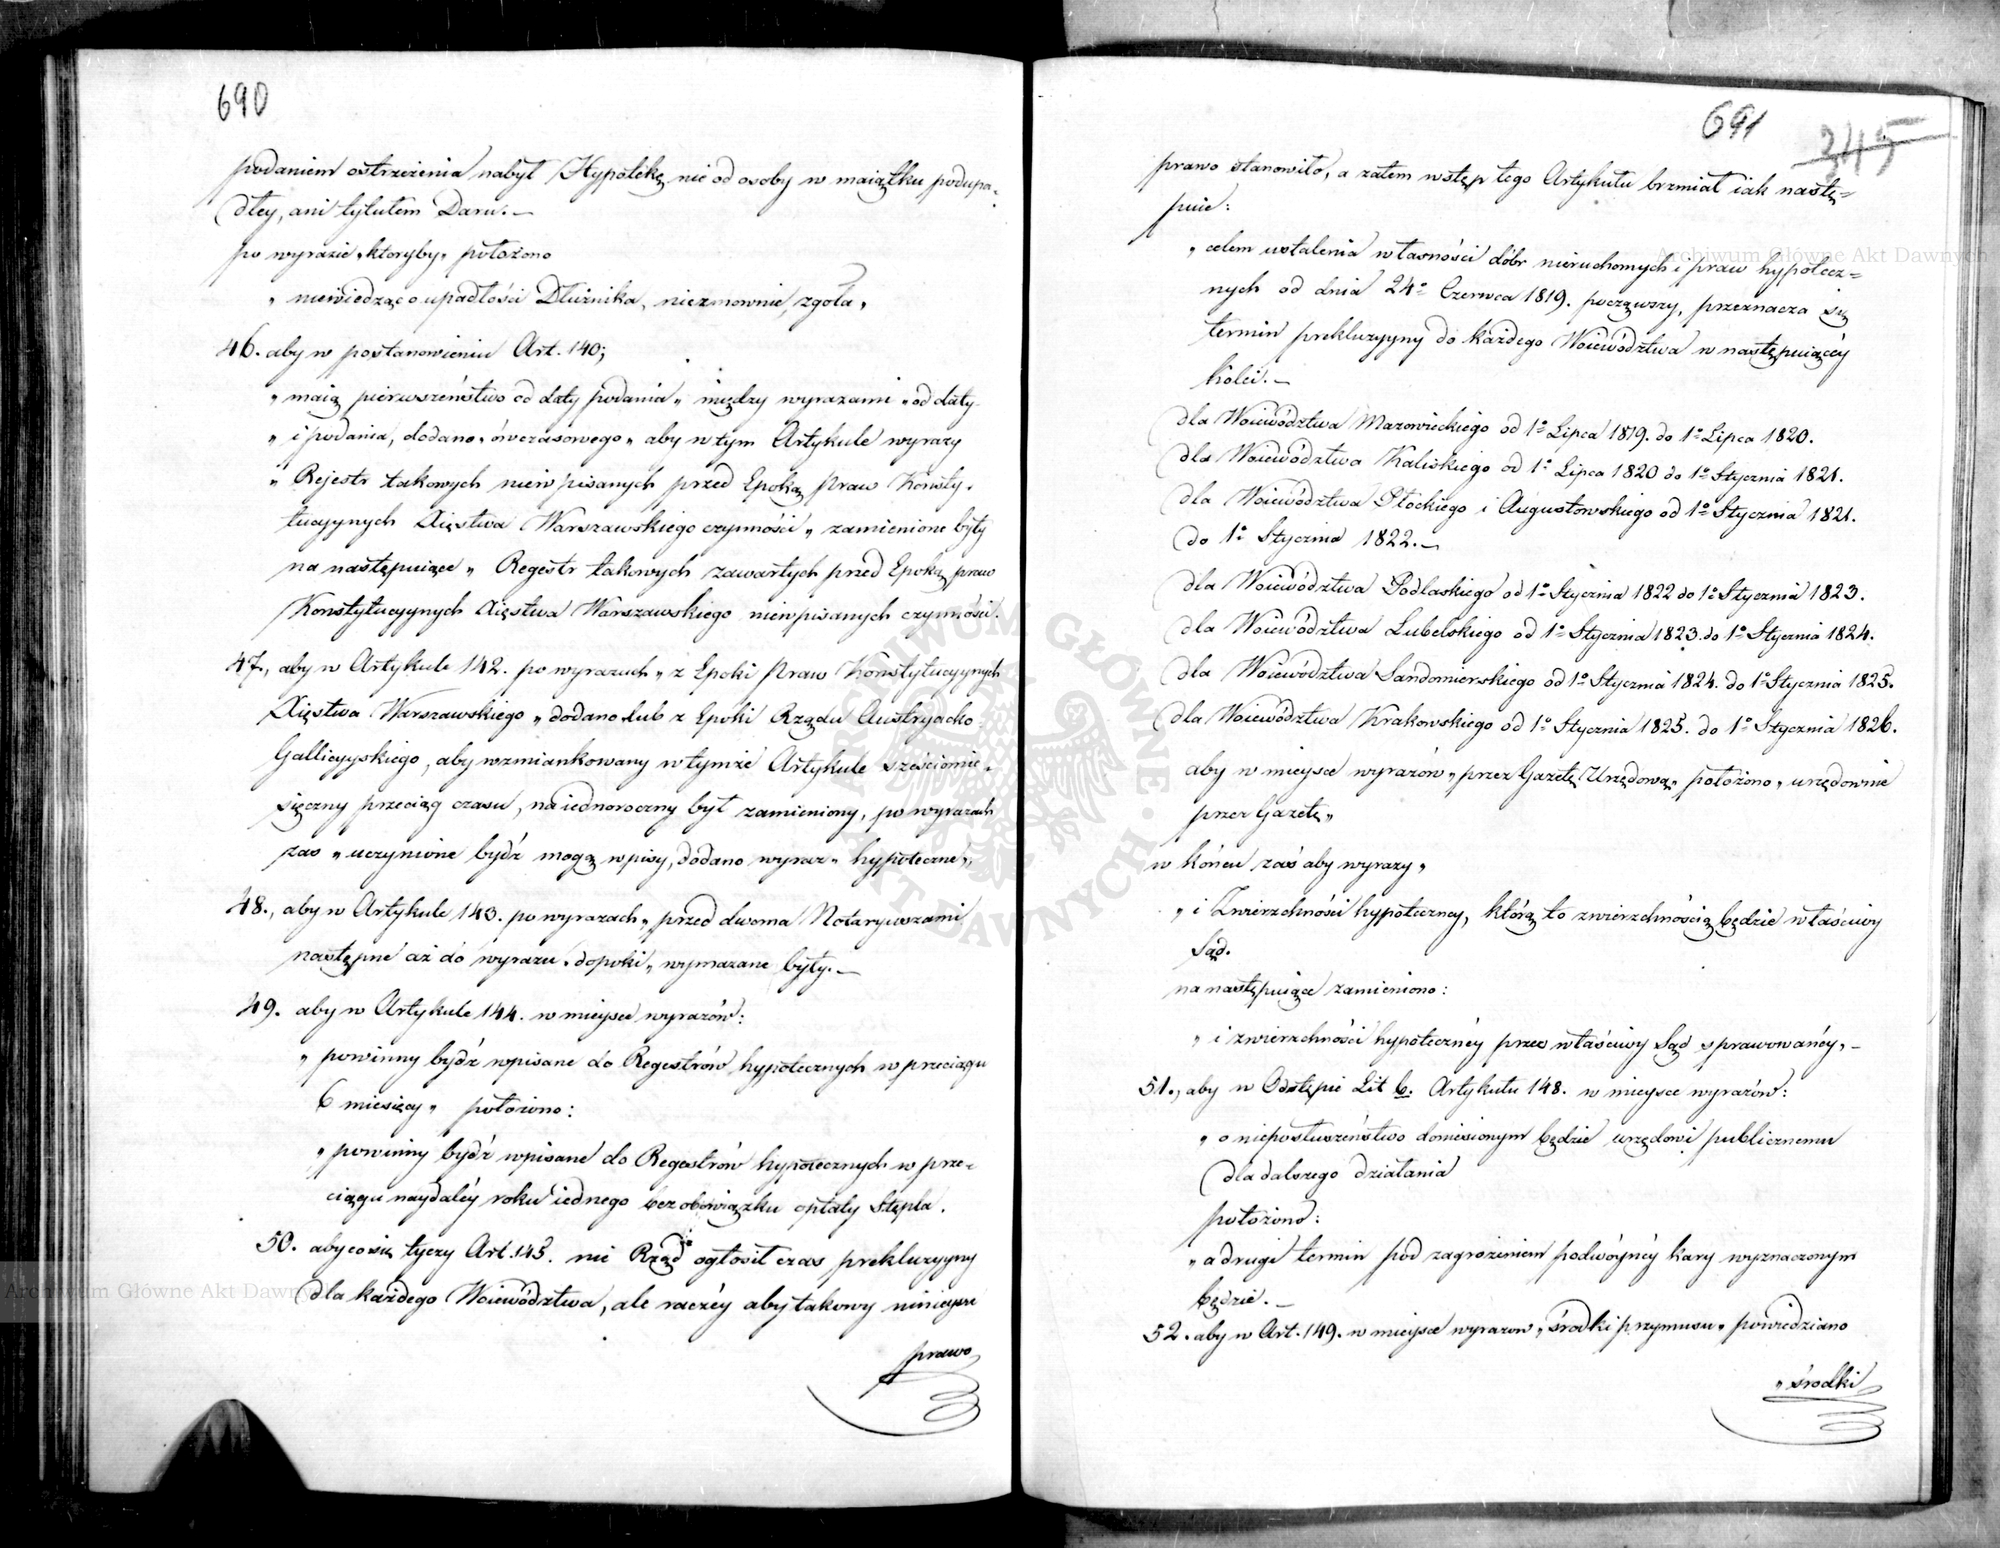 690
podaniem ostrzeżenia nabył Hypotekę nie od osoby w maiątku podupa-
dłey, ani tytułem Daru. —
po wyrazie „któryby„ położono
„ niewiedząc o upadłości Dłużnika, niezmownie, zgoła„
46. aby w postanowieniu Art. 140;
„ maią pierwszeństwo od daty podania„ między wyrazami „od daty
„ i podania, dodano „ówczasowego„ aby w tym Artykule wyrazy
„ Rejestr takowych niewpisanych przed Epoką Praw Konsty-
tucyynych Xięstwa Warszawskiego czynności„ zamienione były
na następuiące „ Regestr takowych zawartych przed Epoką praw
Konstytucyynych Xięstwa Warszawskiego niewpisanych czynności.
47., aby w Artykule 142. po wyrazach „ z Epoki Praw Konstytucyynych
Xięstwa Warszawskiego „ dodano lub z Epoki Rządu Austryacko
Gallicyyskiego, aby wzmiankowany w tymże Artykule sześciomie-
sięczny przeciąg czasu, na iednoroczny był zamieniony, po wyrazach
zaś „ uczynione bydź mogą wpisy, dodano wyraz „ hypoteczne„
48., aby w Artykule 143. po wyrazach „ przed dwoma Notaryuszami
następne aż do wyrazu „dopoki„ wymazane były. —
49. aby w Artykule 144. w mieysce wyrazów:
„ powinny bydź wpisane do Regestrów hypotecznych w przeciągu
6 miesięcy„ położono:
„ powinny bydź wpisane do Regestrów hypotecznych w prze-
ciągu naydaléy roku iednego bez obowiązku opłaty Stępla.
50. aby co się tyczy Art. 145. nie Rząd ogłosił czas prekluzyyny
dla każdego Woiewództwa, ale raczéy aby takowy ninieysze
prawo
691
345
prawo stanowiło, a zatem wstęp tego Artykułu brzmiał iak nastę-
puie:
„ celem ustalenia własności dóbr nieruchomych i praw hypotecz-
nych od dnia 24o Czerwca 1819. począwszy, przeznacza się
termin prekluzyyny do każdego Woiewództwa w następuiącéy
kolei. —
dla Woiewództwa Mazowieckiego od 1o Lipca 1819. do 1o Lipca 1820.
dla Woiewództwa Kaliskiego od 1o Lipca 1820 do 1o Stycznia 1821.
dla Woiewództwa Płockiego i Augustowskiego od 1o Stycznia 1821.
do 1o Stycznia 1822. —
dla Woiewództwa Podlaskiego od 1o Stycznia 1822 do 1o Stycznia 1823.
dla Woiewództwa Lubelskiego od 1o Stycznia 1823. do 1o Stycznia 1824.
dla Woiewództwa Sandomierskiego od 1o Stycznia 1824. do 1o Stycznia 1825.
dla Woiewództwa Krakowskiego od 1o Stycznia 1825. do 1o Stycznia 1826.
aby w mieysce wyrazów „przez Gazetę Urzędową„ położono „ urzędownie
przez Gazetę„
w końcu zaś aby wyrazy „
„ i Zwierzchności hypoteczney, którą to zwierzchnością będzie właściwy
Sąd.
na następuiące zamieniono:
„ i zwierzchności hypotecznéy przez właściwy Sąd sprawowanéy„ —
51., aby w Odstępie Lit b. Artykułu 148. w mieysce wyrazów:
„ o nieposłuszeństwo doniesionym będzie urzędowi publicznemu
dla dalszego działania
położono:
„ a drugi termin pod zagrożeniem podwóynéy kary wyznaczonym
będzie. —
52. aby w Art. 149. w mieysce wyrazow „środki przymusu„ powiedziano
„ środki
Archiwum Główne Akt Dawnych
Archiwum Główne Akt Dawnych
ARCHIWUM GŁÓWNE · AKT DAWNYCH ·